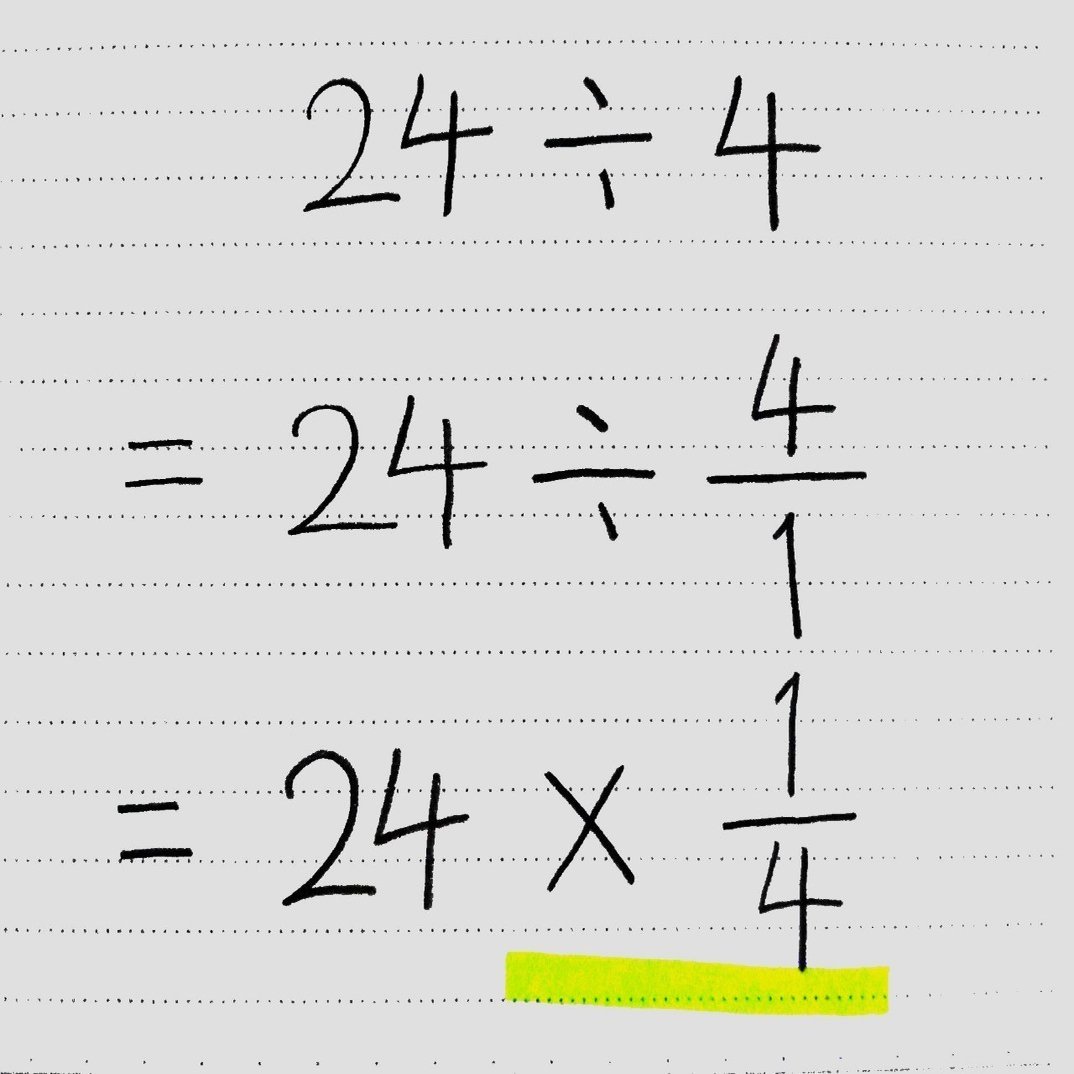 24 ÷ 4
= 24 ÷ 4/1
= 24 × 1/4